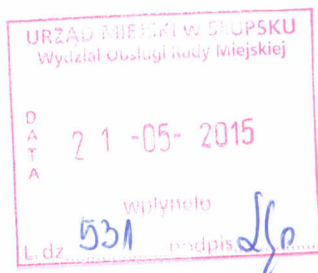 URZĄD MIEJSKI w SŁUPSKU
Wydział Obsługi Rady Miejskiej
DATA
21 -05- 2015
wpłynęło
L. dz. 531 podpis